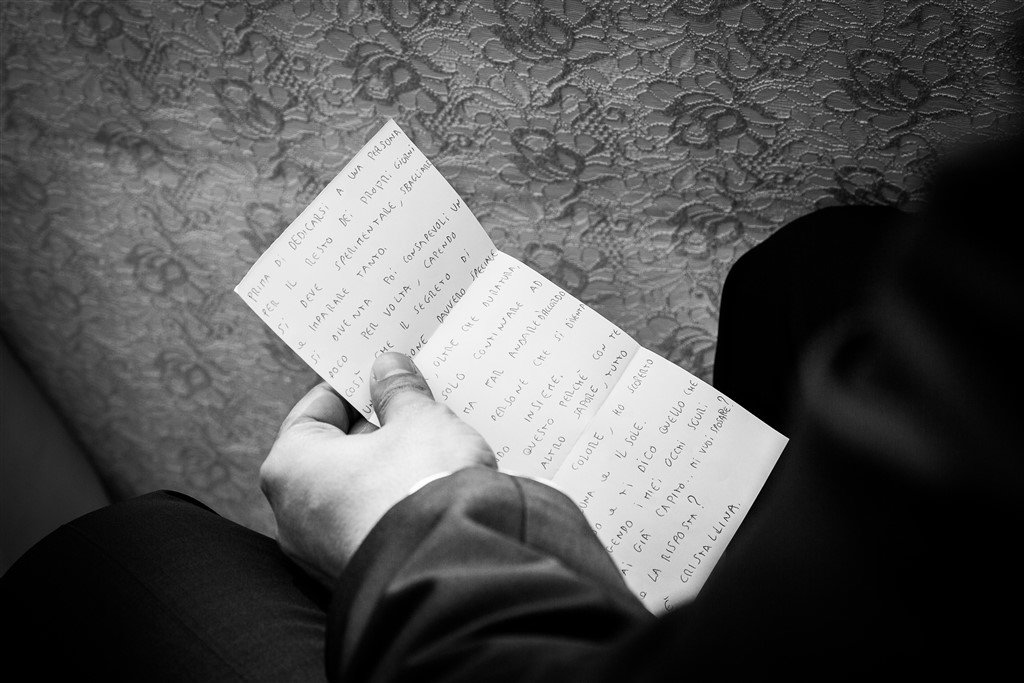 PRIMA DI DEDICARSI A UNA PERSONA
PER IL RESTO DEI PROPRI GIORNI
SI DEVE SPERIMENTARE, SBAGLIARE
e IMPARARE TANTO.
SI DIVENTA POI CONSAPEVOLI UN
POCO PER VOLTA, CAPENDO
COSÌ CHE IL SEGRETO DI
DAVVERO SPECIALE
OLTRE CHE DURATURA,
SOLO CONTINUARE AD
MA FAR ANDARE D'ACCORDO
PERSONE CHE SI
INSIEME.
QUESTO PERCHÈ CON TE
ALTRO SAPORE, TUTTO
COLORE, HO SCOPERTO
e IL SOLE.
e TI DICO QUELLO CHE
I MIEI OCCHI SCURI:
GIÀ CAPITO.. MI VUOI SPOSARE?
LA RISPOSTA?
CRISTALLINA.